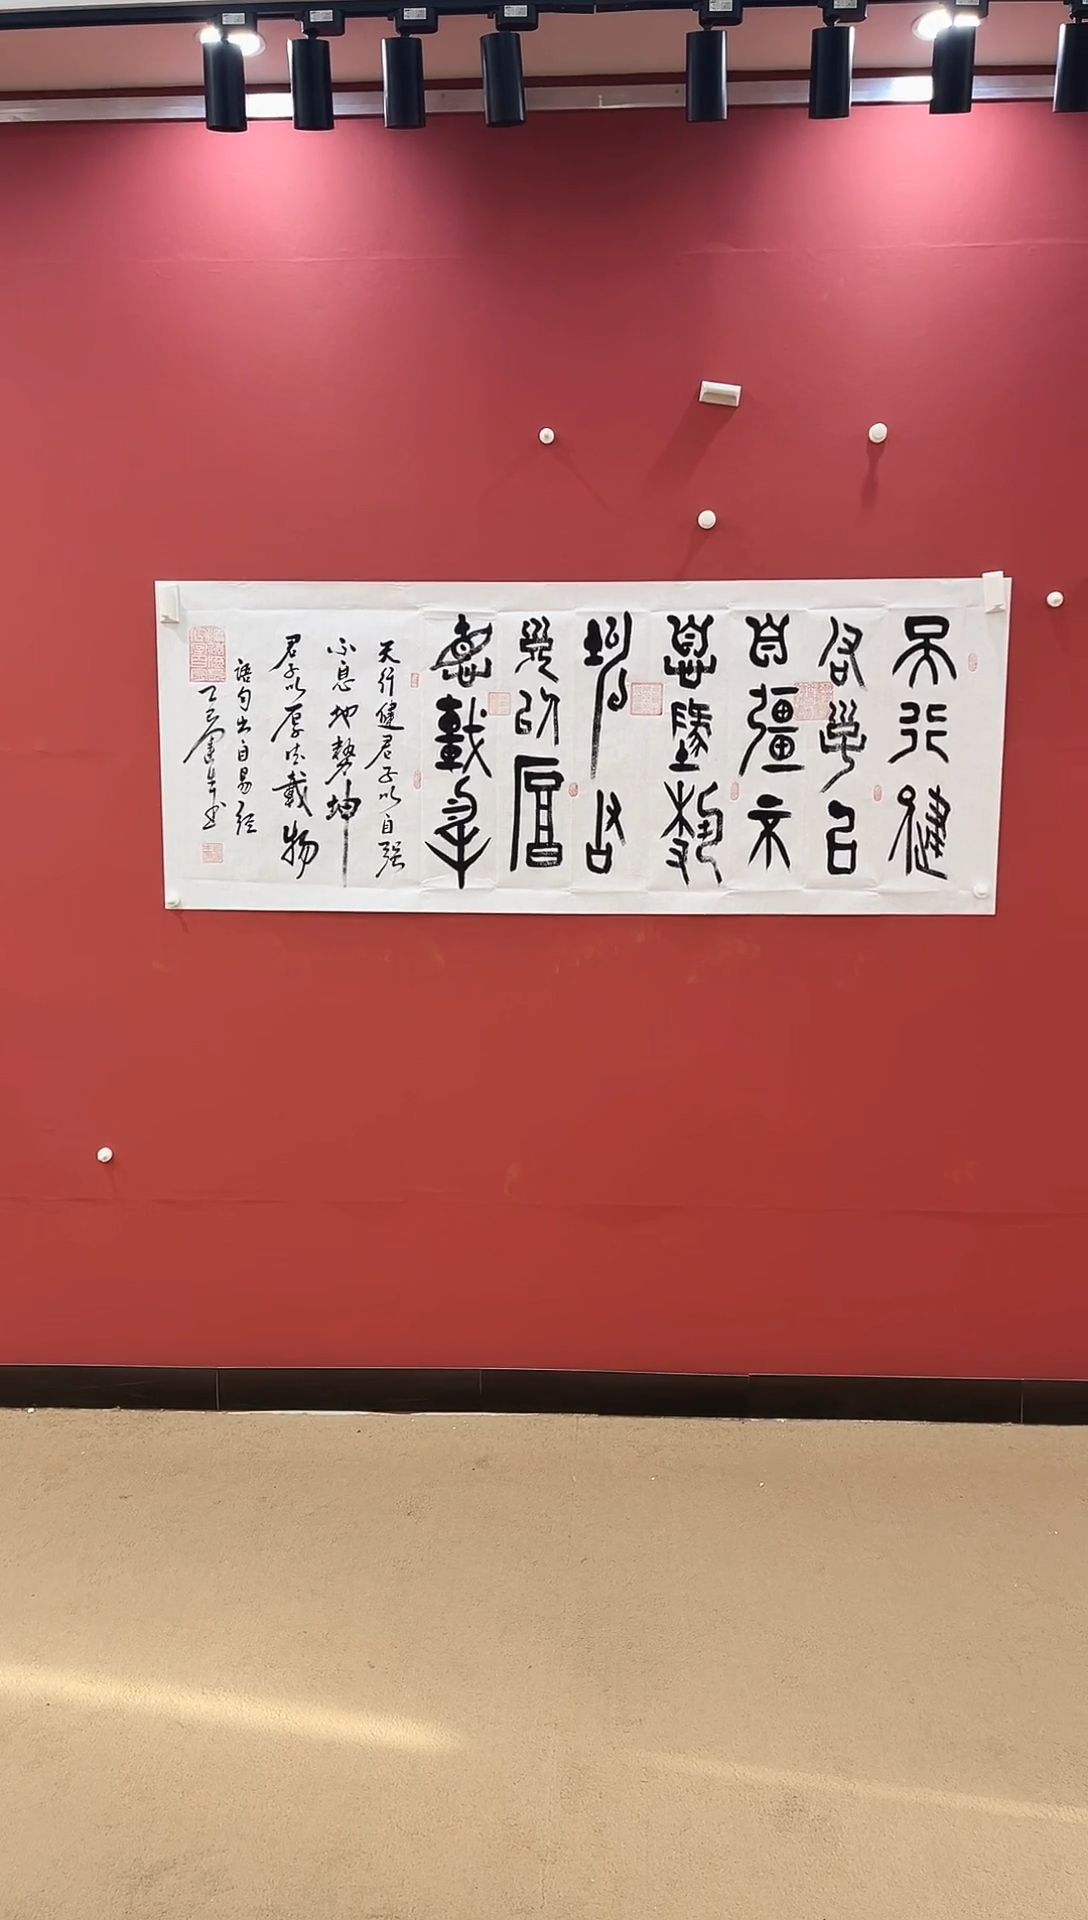 天行健
君子以
自彊不
息墬埶
坤君
子以厚
悳載物
天行健君子以自强
不息地勢坤
君子以厚德載物
語句出自易经